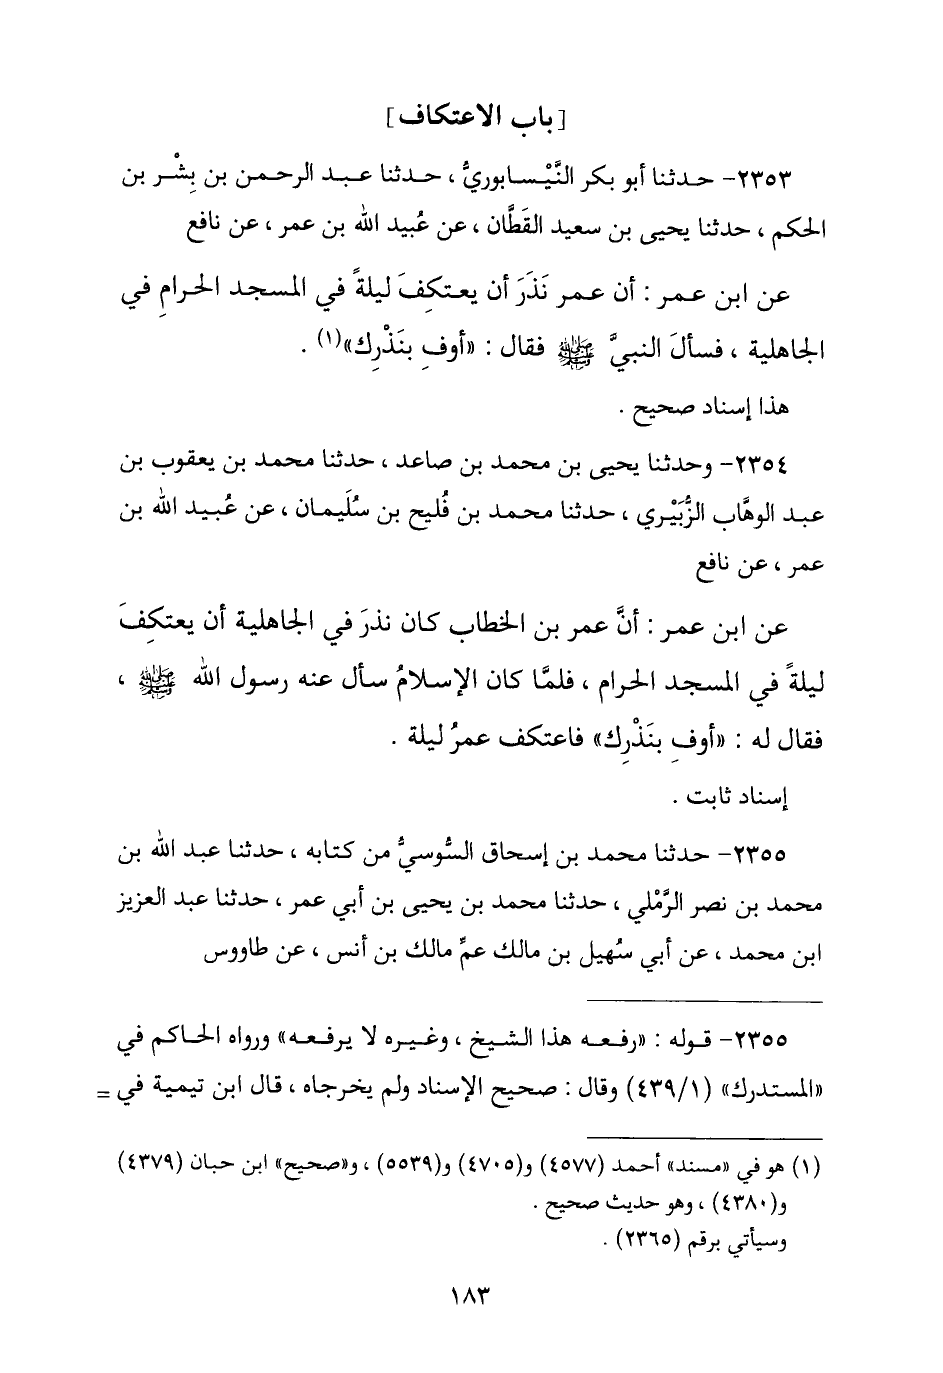 [باب الاعتكاف]
٢٣٥٣- حدثنا أبو بكر النَّيْسابوريُّ ، حدثنا عبد الرحمن بن بِشْر بن
الحكم ، حدثنا يحيى بن سعيد القَطَّان ، عن عُبيد الله بن عمر ، عن نافع
عن ابن عمر : أن عمر نَذَرَ أن يعتكِفَ ليلةً في المسجد الحرامِ في
الجاهلية ، فسألَ النبيَّ ﷺ فقال : «أوفِ بنَذْرِك»(١) .
هذا إسناد صحيح .
٢٣٥٤- وحدثنا يحيى بن محمد بن صاعد ، حدثنا محمد بن يعقوب بن
عبد الوهَّاب الزُّبَيْري ، حدثنا محمد بن فُليح بن سُلَيمان ، عن عُبيد الله بن
عمر ، عن نافع
عن ابن عمر : أنَّ عمر بن الخطاب كان نذرَ في الجاهلية أن يعتكِفَ
ليلةً في المسجد الحرام ، فلمَّا كان الإسلامُ سأل عنه رسول الله ﷺ ،
فقال له : «أوفِ بنَذْرِك» فاعتكف عمرُ ليلة .
إسناد ثابت .
٢٣٥٥- حدثنا محمد بن إسحاق السُّوسيُّ من كتابه ، حدثنا عبد الله بن
محمد بن نصر الرَّمْلي ، حدثنا محمد بن يحيى بن أبي عمر ، حدثنا عبد العزيز
ابن محمد ، عن أبي سُهيل بن مالك عمِّ مالك بن أنس ، عن طاووس
٢٣٥٥- قوله : «رفعه هذا الشيخ ، وغيره لا يرفعه» ورواه الحاكم في
«المستدرك» (٤٣٩/١) وقال : صحيح الإسناد ولم يخرجاه ، قال ابن تيمية في =
(١) هو في «مسند» أحمد (٤٥٧٧) و(٤٧٠٥) و(٥٥٣٩) ، و«صحيح» ابن حبان (٤٣٧٩)
و(٤٣٨٠) ، وهو حديث صحيح .
وسيأتي برقم (٢٣٦٥) .
١٨٣